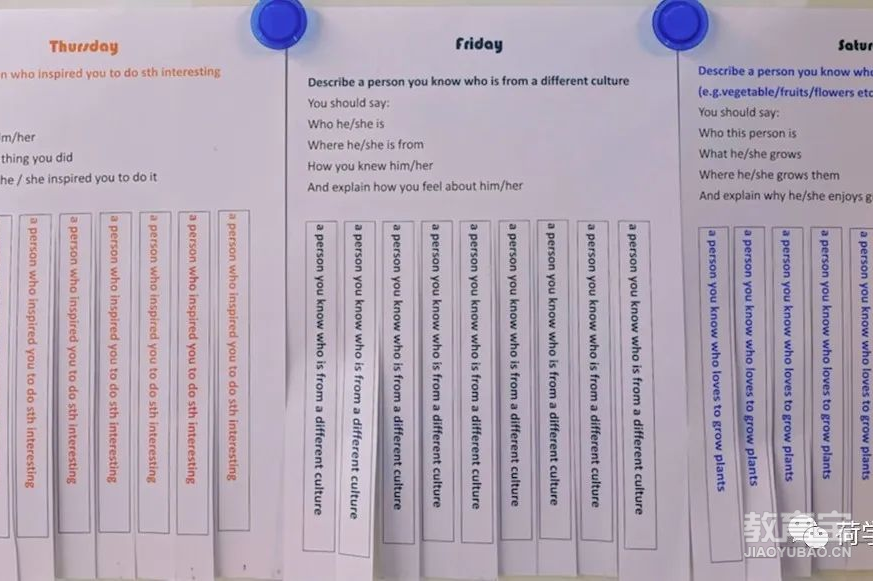 Thursday
n who inspired you to do sth interesting
im/her
thing you did
he / she inspired you to do it
a person who inspired you to do sth interesting
a person who inspired you to do sth interesting
a person who inspired you to do sth interesting
a person who inspired you to do sth interesting
a person who inspired you to do sth interesting
a person who inspired you to do sth interesting
Friday
Describe a person you know who is from a different culture
You should say:
Who he/she is
Where he/she is from
How you knew him/her
And explain how you feel about him/her
a person you know who is from a different culture
a person you know who is from a different culture
a person you know who is from a different culture
a person you know who is from a different culture
a person you know who is from a different culture
a person you know who is from a different culture
a person you know who is from a different culture
a person you know who is from a different culture
a person you know who is from a different culture
Satur
Describe a person you know who
(e.g.vegetable/fruits/flowers etc
You should say:
Who this person is
What he/she grows
Where he/she grows them
And explain why he/she enjoys g
a person you know who loves to grow plants
a person you know who loves to grow plants
a person you know who loves to grow plants
a person you know who loves to grow plants
a person you know who loves to grow plants
教育宝
JIAOYUBAO.CN
荷学